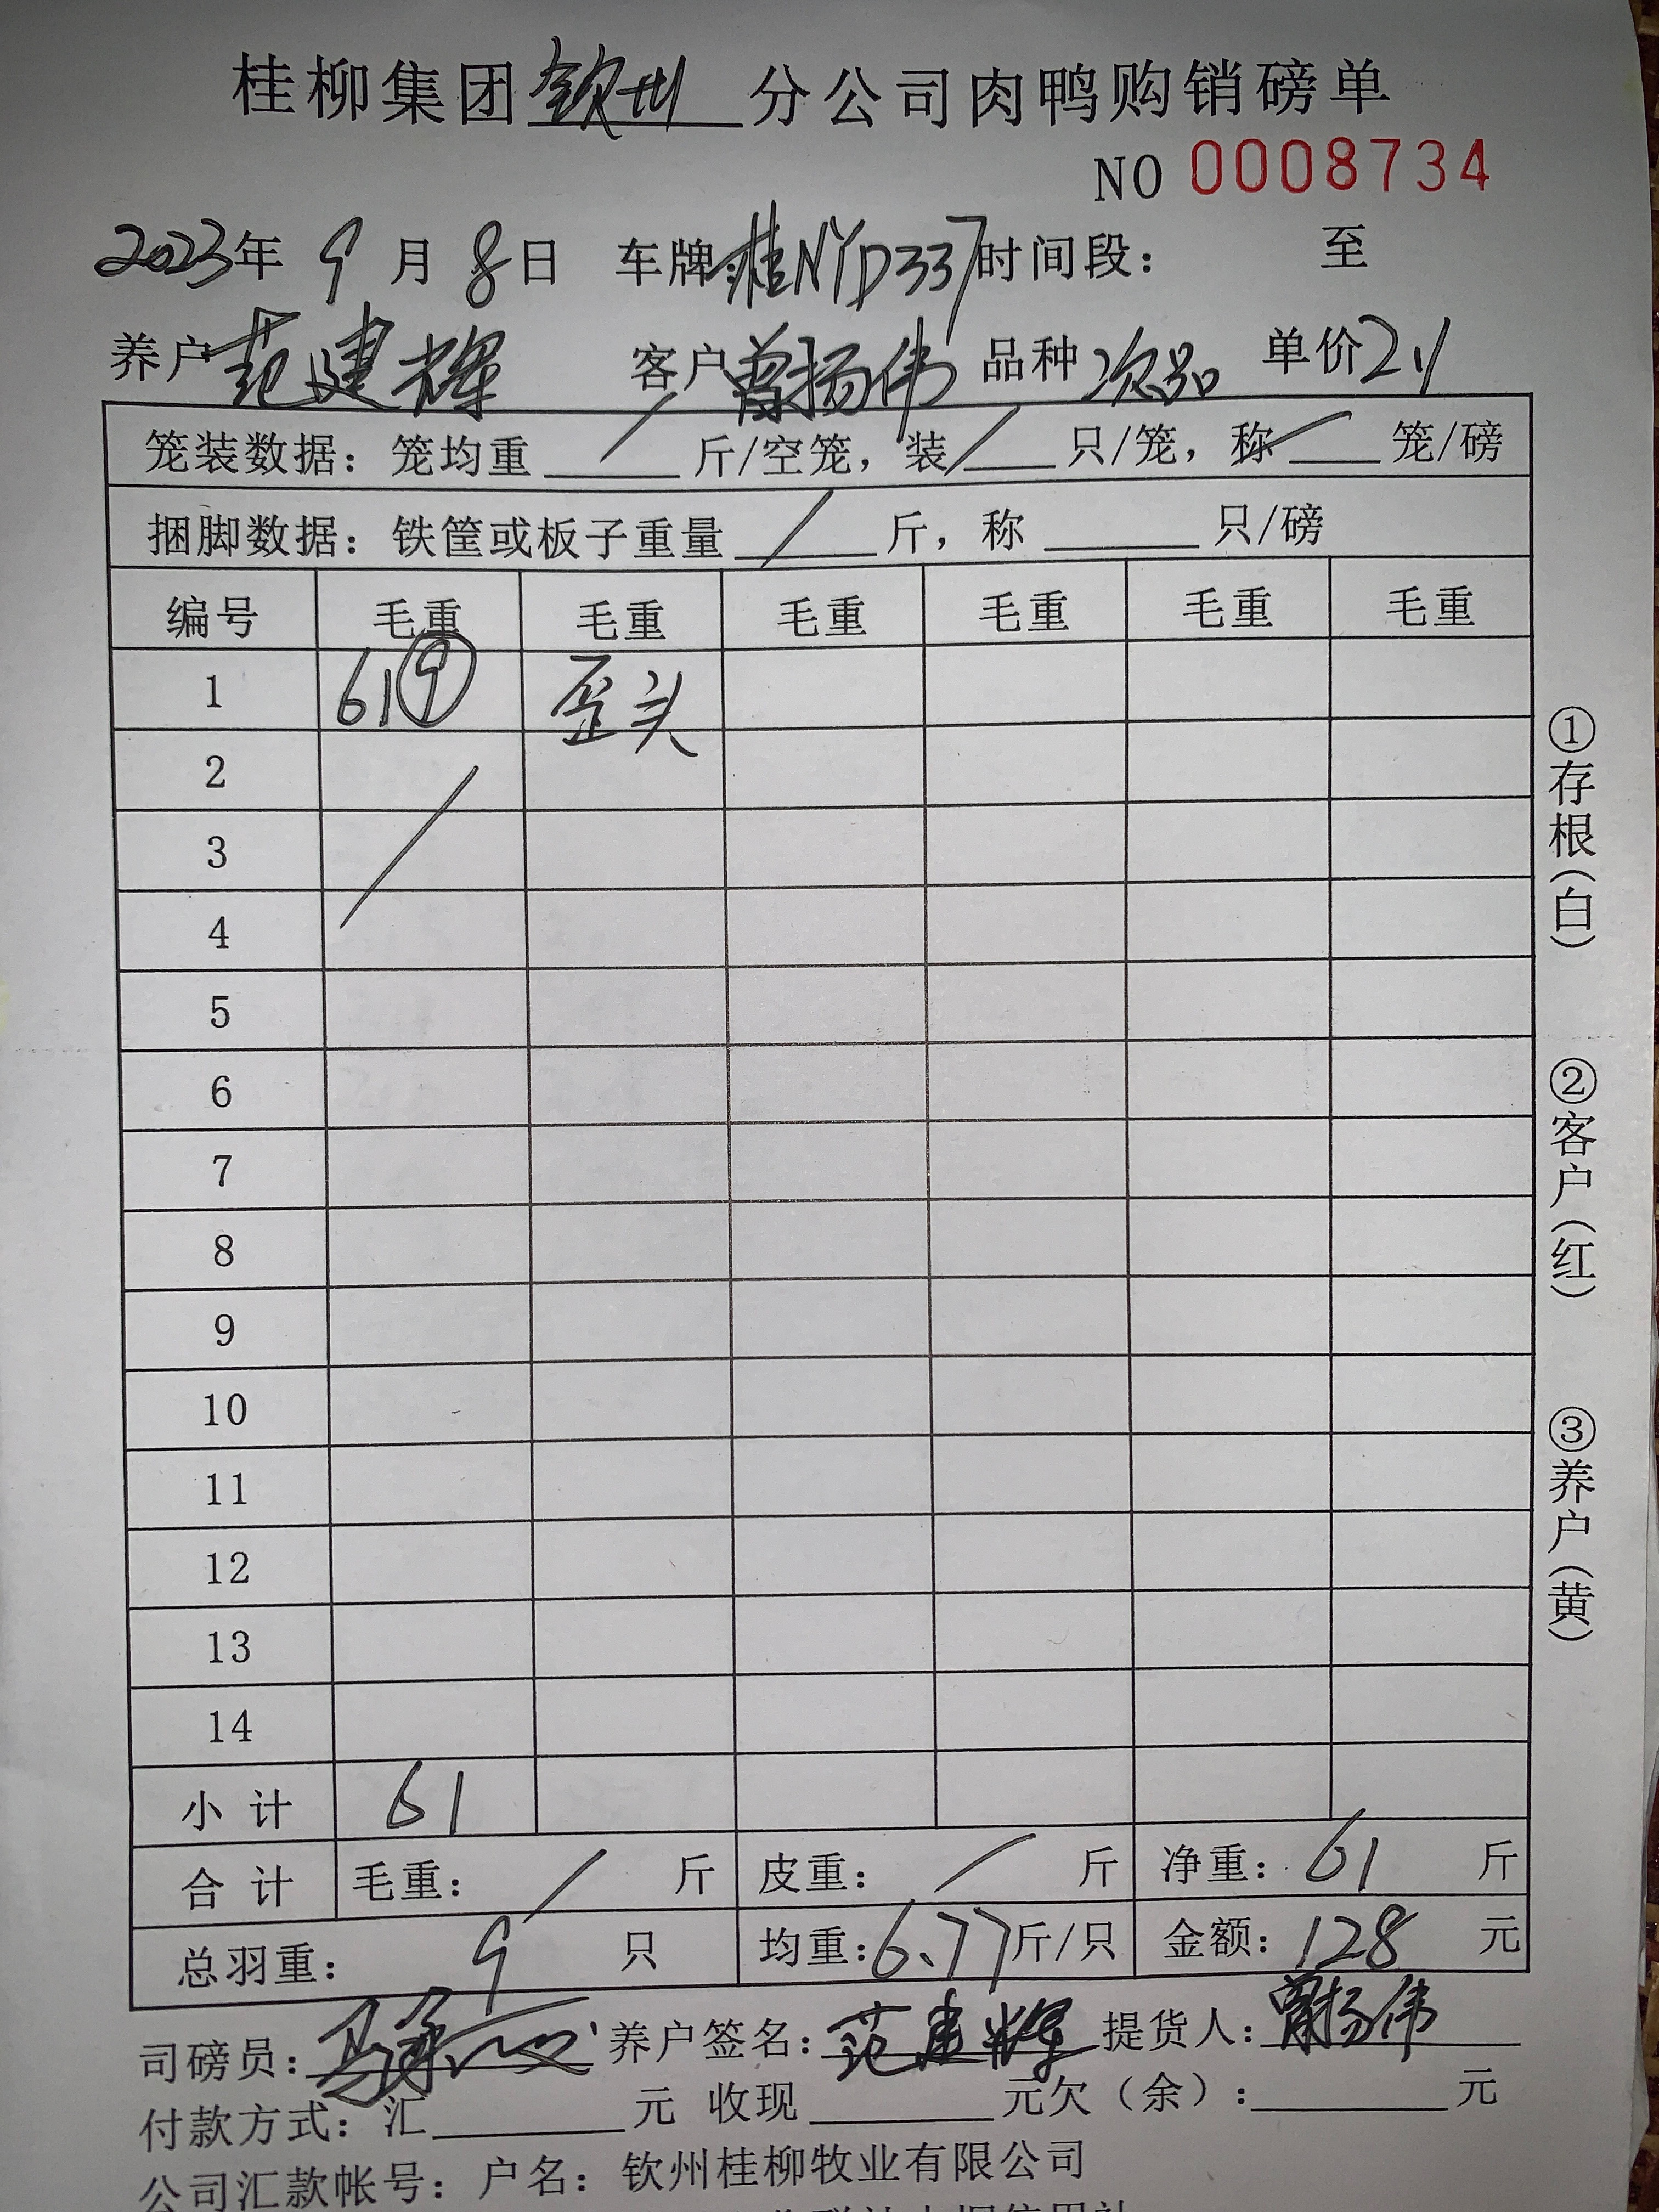 桂柳集团钦州分公司肉鸭购销磅单
NO 0008734
2023年 9 月 8 日 车牌:桂NYD337 时间段: 至
养户 范建辉 客户 曾扬伟 品种 次品 单价 2.1
笼装数据: 笼均重 / 斤/空笼, 装 / 只/笼, 称 / 笼/磅
捆脚数据: 铁筐或板子重量 / 斤, 称 只/磅
编号 毛重 毛重 毛重 毛重 毛重 毛重
1 61⑨ 歪头
2
3
4
5
6
7
8
9
10
11
12
13
14
小计 61
合计 毛重: / 斤 皮重: / 斤 净重: 61 斤
总羽重: 9 只 均重: 6.77 斤/只 金额: 128 元
司磅员: 养户签名: 范建辉 提货人: 曾扬伟
付款方式: 汇 元 收现 元欠(余): 元
公司汇款帐号: 户名: 钦州桂柳牧业有限公司
①存根(白)
②客户(红)
③养户(黄)